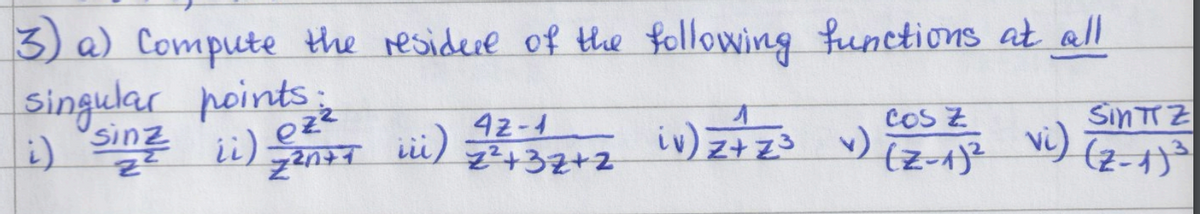 3) a) Compute the residue of the following functions at all
singular points:
i) sinz/z² ii) e^z²/z^2n+1 iii) 4z-1/z²+3z+2 iv) 1/z+z³ v) cos z/(z-1)² vi) sin πz/(z-1)³